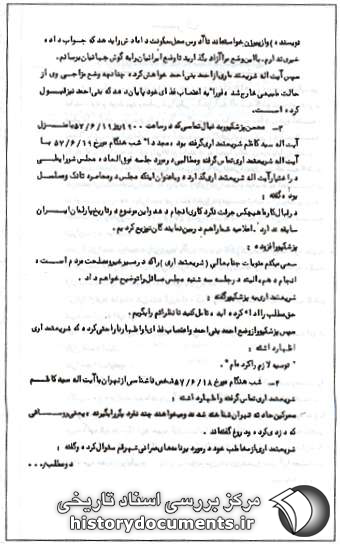 نویسنده) و از بیرون خواسته‌اند تا آدرس محل سکونت داماد ش را بدهد که جواب داده
خبری ندارم. با این وضع مرا آزاد بگذارید تا وضع ایرانیان را به گوش جهانیان برسانم.
سپس آیت اله شریعتمداری از احمد بنی احمد خواهش کرده چنانچه وضع مزاجی وی از
حالت طبیعی خارج شد فورا" به اعتصاب غذای خود پایان دهد که بنی احمد نیز قبول
کرده است.
۳ـ محسن پزشکپور به دنبال تماسی که در ساعت ۱۹۰۰ روز ۵۷/۶/۱۱ با منزل
آیت اله سید کاظم شریعتمداری گرفته بود مجددا" شب هنگام مورخ ۵۷/۶/۱۹ با
آیت اله شریعتمداری تماس گرفته و مطالبی در مورد جلسه فوق العاده مجلس شورایملی
در اختیار آیت اله شریعتمداری گذارده و با عنوان اینکه مجلس در محاصره تانک و مسلسل
بوده گفته :
در قبال کارها هیچکس جرئت نکرد کاری انجام دهد و این موضوع در تاریخ پارلمان ایران
سابقه ندارد. اعلامیه شما را هم در بین نمایندگان توزیع کردیم.
پزشکپور افزوده :
سعی میکنم منویات جنابعالی (شریعتمداری) را که در مسیر خیر و مصلحت مردم است
انجام دهم، البته در جلسه سه شنبه مجلس مسائل را توضیح خواهم داد.
شریعتمداری به پزشکپور گفته :
حق مطلب را ادا کرده اید و تامل کنید تا نظراتم را بگویم.
سپس پزشکپور از وضع احمد بنی احمد و اعتصاب غذای او اظهار ناراحتی کرده که شریعتمداری
اظهار داشته :
" توصیه لازم را کرده ام".
۴ـ شب هنگام مورخ ۵۷/۶/۱۸ شخص ناشناسی از تهران با آیت اله سید کاظم
شریعتمداری تماس گرفته و اظهار داشته :
محرکین حادثه تهران شناخته شده و میخواهند چند نفر دیگر را بگیرند
که دزدی کرده و دروغ گفته‌اند.
شریعتمداری از مخاطب خود در مورد برنامه‌های عمرانی شهر قم سئوال کرده و گفته :
مرکز بررسی اسناد تاریخی
historydocuments.ir